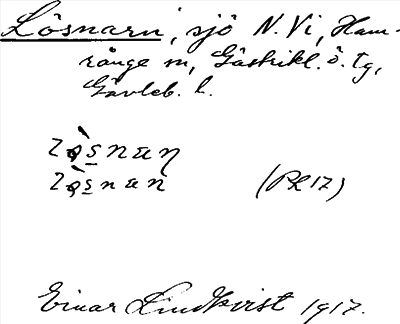 Lösnarn, sjö N. Vi, Ham-
rånge sn, Gästrikl. ö. tg,
Gävleb. l.
(PL 17)
Einar Lindkvist 1917.